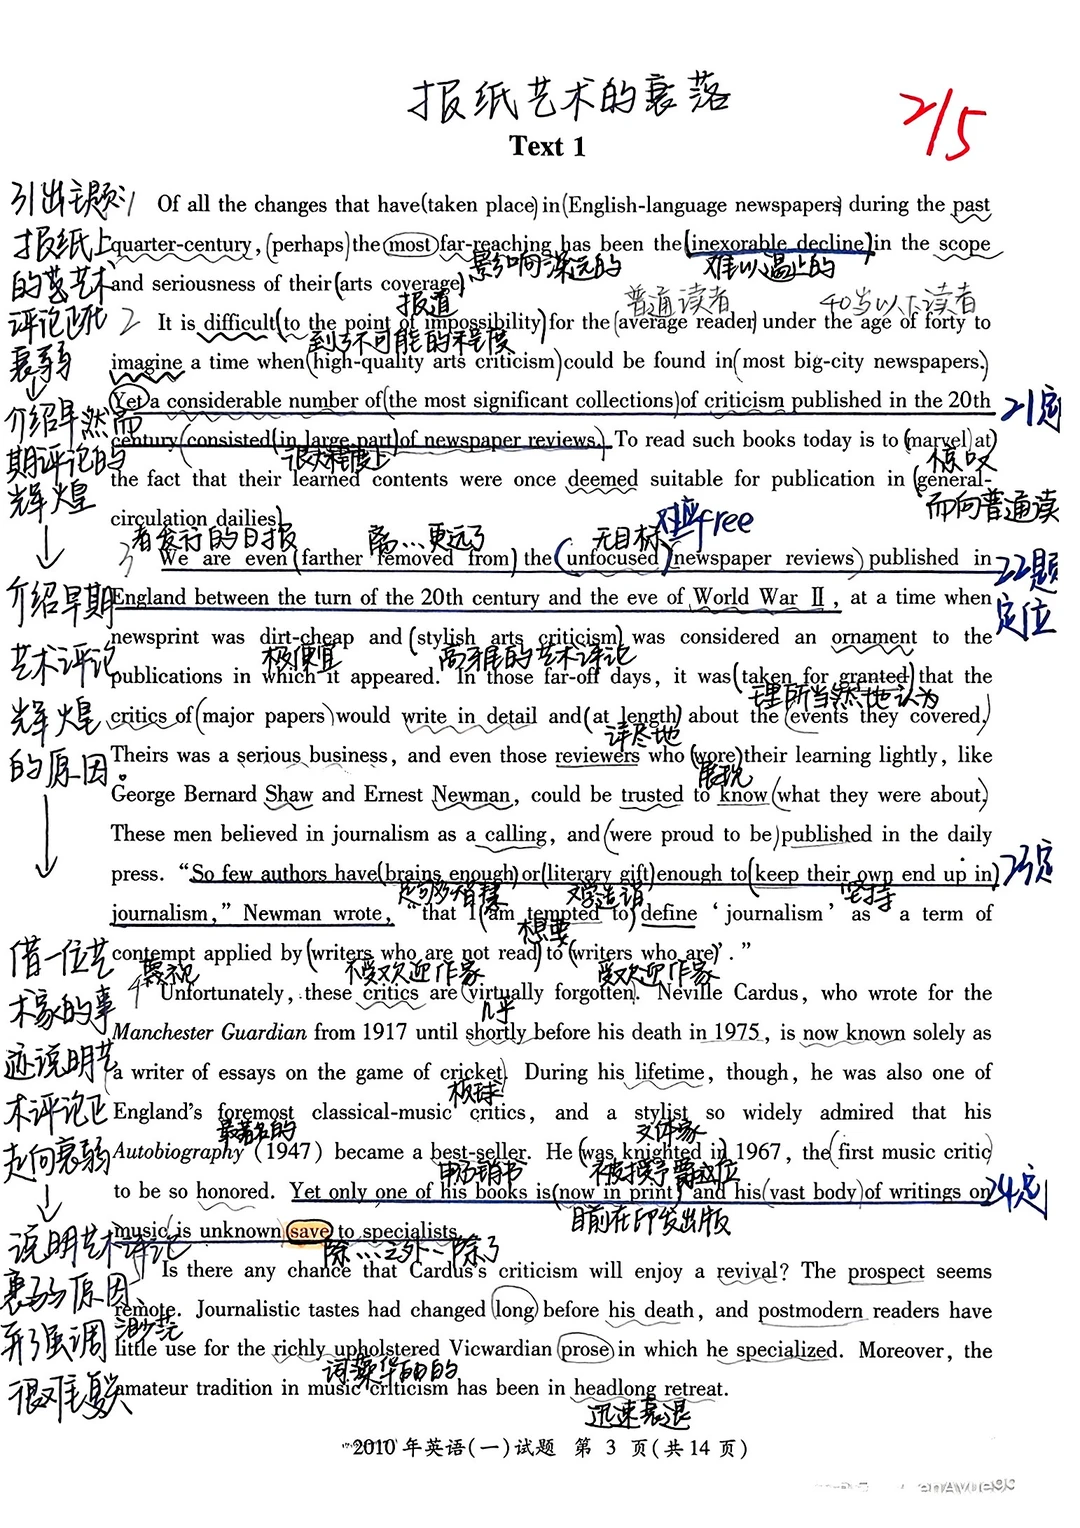 报纸艺术的衰落
2/5
Text 1
引出主题:
报纸上
的艺术
评论已
衰弱
介绍早
期评论的
辉煌
介绍早期
艺术评论
辉煌
的原因。
借一位艺
术家的事
迹说明艺
术评论已
走向衰弱
说明艺术评论
衰弱原因、
并强调
很难复兴
1 Of all the changes that have (taken place) in (English-language newspapers) during the past
quarter-century, (perhaps) the most far-reaching has been the (inexorable decline) in the scope
影响深远的 难以遏止的
and seriousness of their (arts coverage)
报道 普通读者 40岁以下读者
2 It is difficult (to the point of impossibility) for the (average reader) under the age of forty to
到了不可能的程度
imagine a time when (high-quality arts criticism) could be found in (most big-city newspapers.)
Yet a considerable number of (the most significant collections) of criticism published in the 20th
21定
然而
century (consisted (in large part) of newspaper reviews.) To read such books today is to (marvel) at
很大程度上 惊叹
the fact that their learned contents were once deemed suitable for publication in (general-
而向普通读
circulation dailies)
者发行的日报 离…更远了 无目标 对应free
3 We are even (farther removed from) the (unfocused) (newspaper reviews) published in
22题
定位
England between the turn of the 20th century and the eve of World War Ⅱ, at a time when
newsprint was dirt-cheap and (stylish arts criticism) was considered an ornament to the
极便宜 高雅的艺术评论
publications in which it appeared. In those far-off days, it was (taken for granted) that the
理所当然地认为
critics of (major papers) would write in detail and (at length) about the (events they covered.)
详尽地
Theirs was a serious business, and even those reviewers who (wore) their learning lightly, like
展现
George Bernard Shaw and Ernest Newman, could be trusted to know (what they were about)
These men believed in journalism as a calling, and (were proud to be) published in the daily
press. "So few authors have (brains enough) or (literary gift) enough to (keep their own end up in)
23定
足够多智慧 文学造诣 坚持
journalism," Newman wrote, "that I (am tempted to) define 'journalism' as 'a term of
想要
contempt applied by (writers who are not read) to (writers who are)'."
蔑视 不受欢迎作家 受欢迎作家
4 Unfortunately, these critics are (virtually forgotten). Neville Cardus, who wrote for the
几乎
Manchester Guardian from 1917 until shortly before his death in 1975, is now known solely as
a writer of essays on the game of cricket. During his lifetime, though, he was also one of
板球
England's foremost classical-music critics, and a stylist so widely admired that his
最著名的 文体家
Autobiography (1947) became a best-seller. He (was knighted in) 1967, the (first music critic)
畅销书 被授予爵士位
to be so honored. Yet only one of his books is (now in print) and his (vast body) of writings on
24定
目前在印发出版
music (is unknown) save to specialists.
除…之外 除了
Is there any chance that Cardus's criticism will enjoy a revival? The prospect seems
remote. Journalistic tastes had changed (long) before his death, and postmodern readers have
渺茫
little use for the richly upholstered Vicwardian (prose) in which he specialized. Moreover, the
词藻华丽的
amateur tradition in music criticism has been in headlong retreat.
迅速衰退
2010年英语(一)试题 第 3 页(共14页)